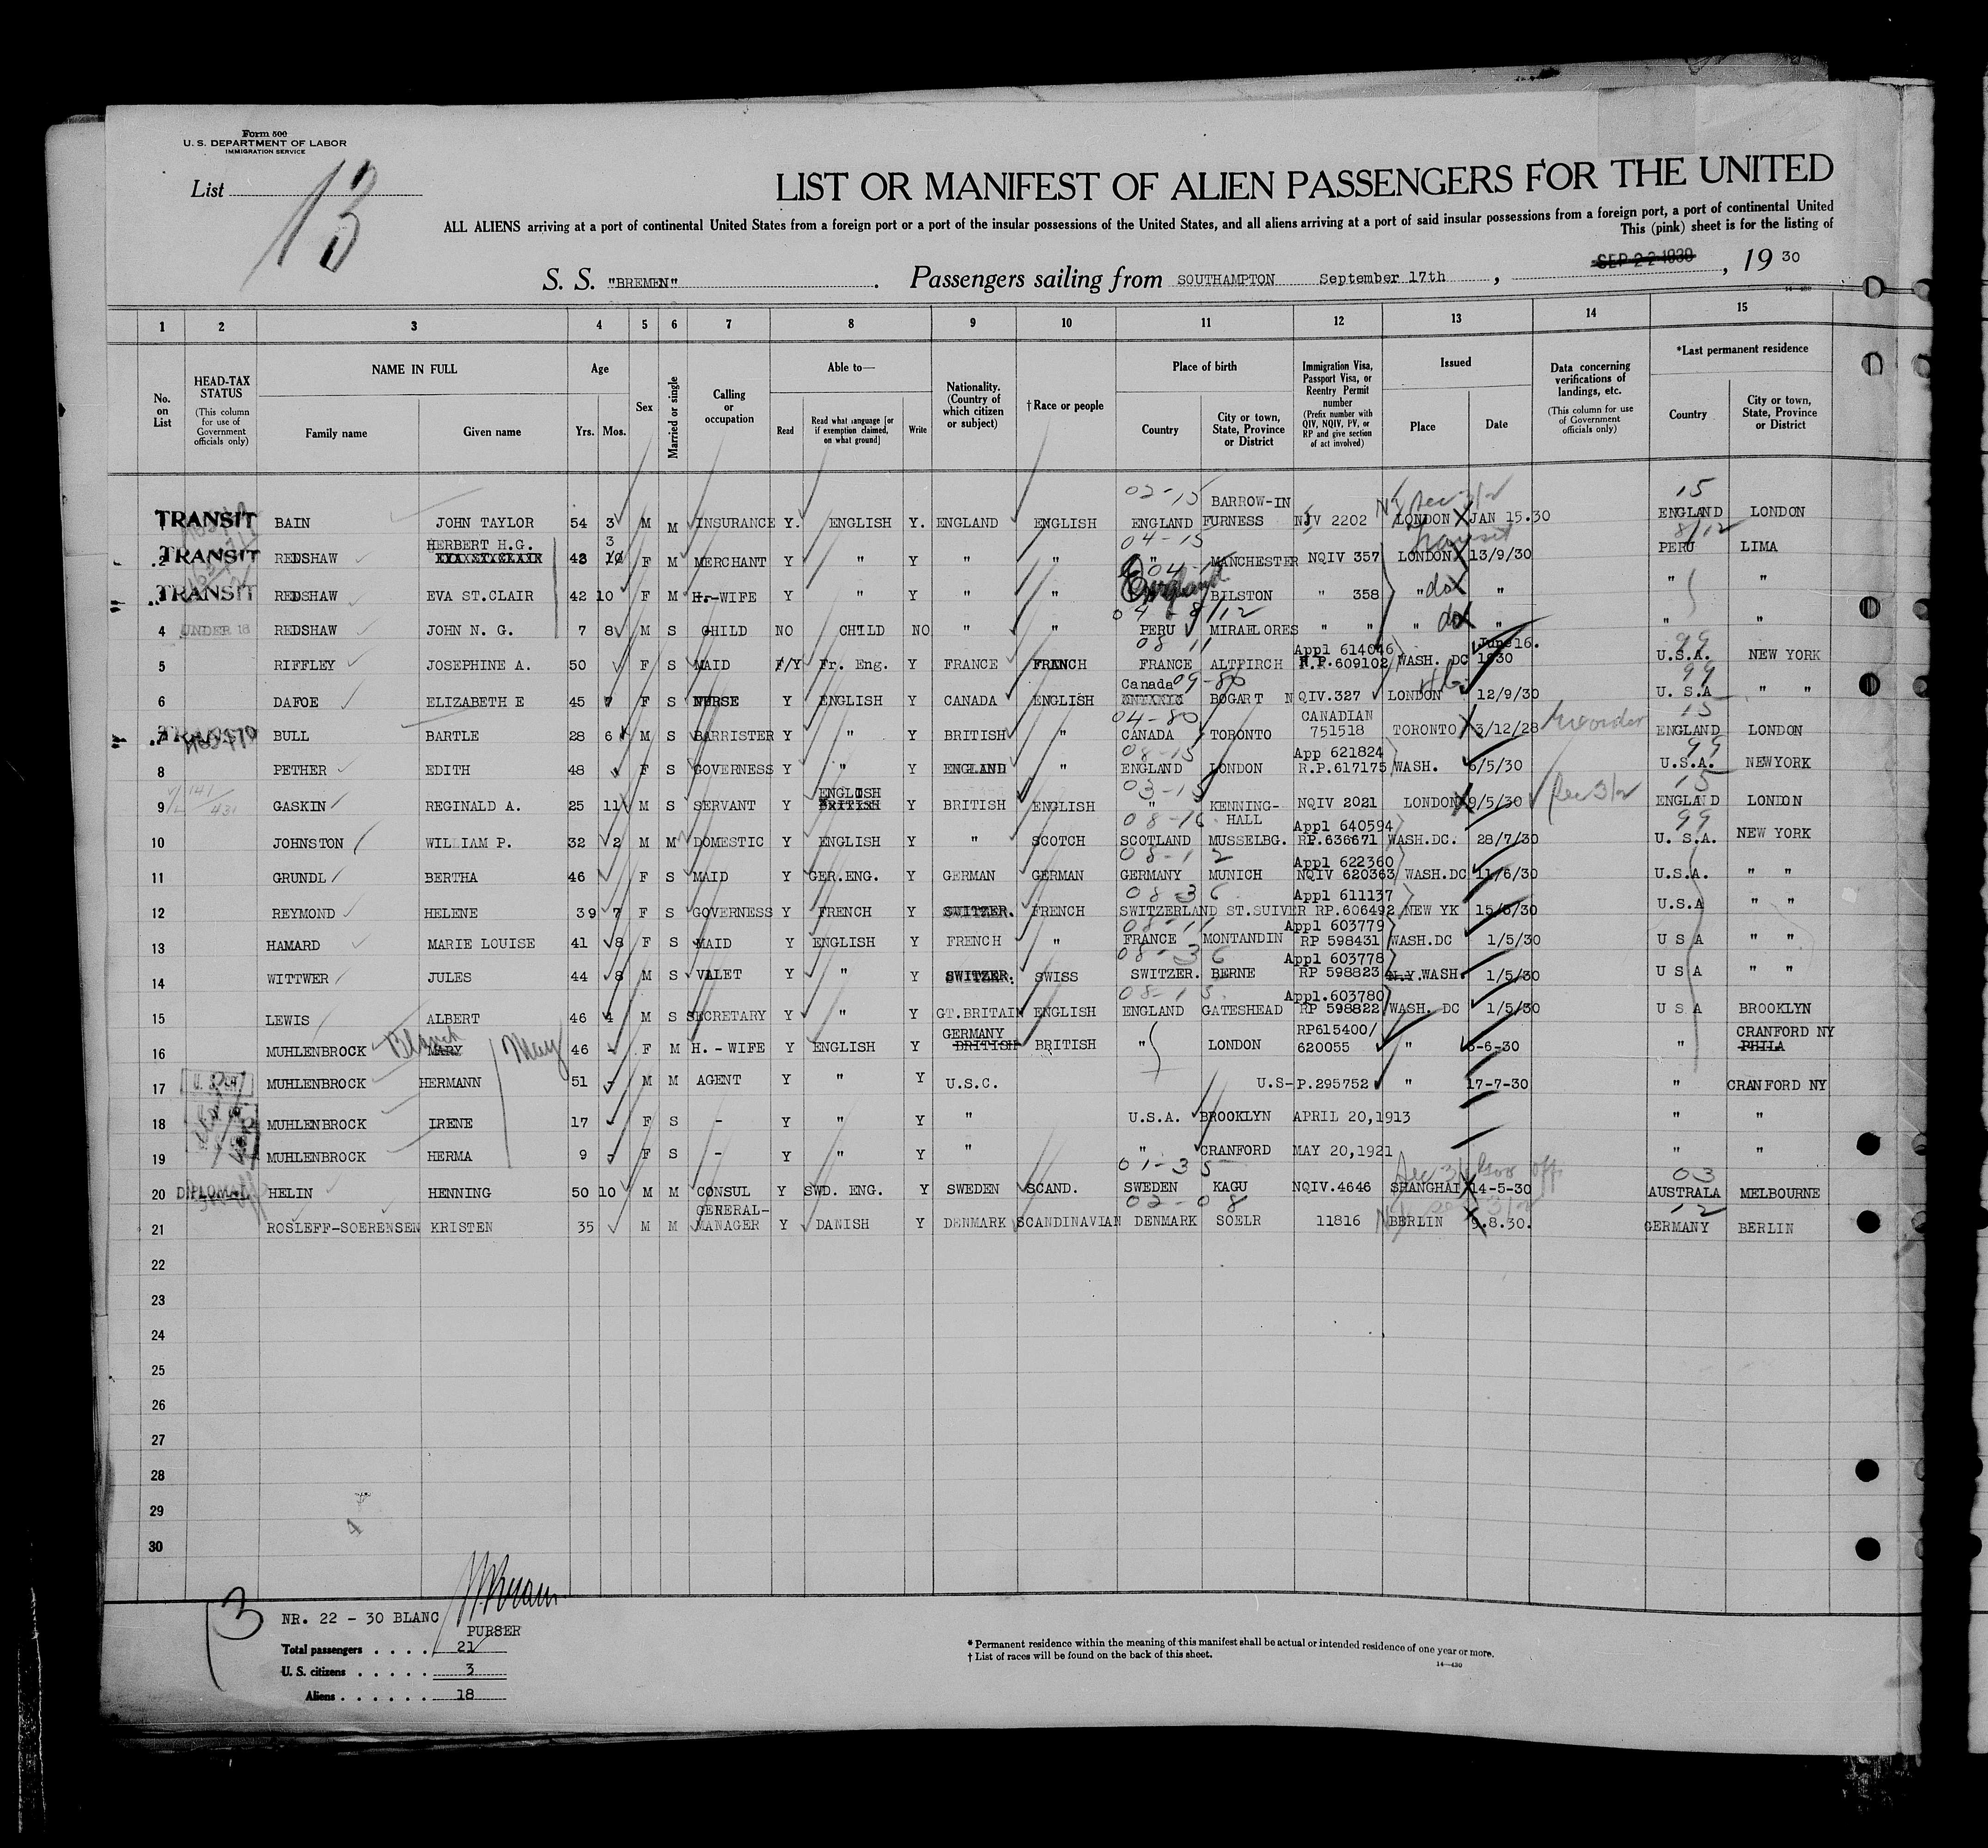 Form 500
U. S. DEPARTMENT OF LABOR
IMMIGRATION SERVICE
List 13
LIST OR MANIFEST OF ALIEN PASSENGERS FOR THE UNITED
ALL ALIENS arriving at a port of continental United States from a foreign port or a port of the insular possessions of the United States, and all aliens arriving at a port of said insular possessions from a foreign port, a port of continental United
This (pink) sheet is for the listing of
S. S. "BREMEN". Passengers sailing from SOUTHAMPTON September 17th, SEP 22 1930, 19 30
1 2 3 4 5 6 7 8 9 10 11 12 13 14 15
No. on List
HEAD-TAX STATUS (This column for use of Government officials only)
NAME IN FULL
Family name Given name
Age Yrs. Mos.
Sex
Married or single
Calling or occupation
Able to— Read Read what language [or if exemption claimed, on what ground] Write
Nationality. (Country of which citizen or subject)
†Race or people
Place of birth Country City or town, State, Province or District
Immigration Visa, Passport Visa, or Reentry Permit number (Prefix number with QIV, NQIV, PV, or RP and give section of act involved)
Issued Place Date
Data concerning verifications of landings, etc. (This column for use of Government officials only)
*Last permanent residence Country City or town, State, Province or District
02-15 BARROW-IN 15
TRANSIT BAIN JOHN TAYLOR 54 3 M M INSURANCE Y. ENGLISH Y. ENGLAND ENGLISH ENGLAND FURNESS 2202 LONDON JAN 15.30 ENGLAND LONDON
HERBERT H.G. 3 04-15 transit 8/12
2 TRANSIT REDSHAW 43 10 F M MERCHANT Y " Y " " " MANCHESTER NQIV 357 LONDON 13/9/30 PERU LIMA
3 TRANSIT REDSHAW EVA ST.CLAIR 42 10 F M H.-WIFE Y " Y " " England BILSTON " 358 " do " " "
04 8/12
4 UNDER 16 REDSHAW JOHN N. G. 7 8 M S CHILD NO CHILD NO " " PERU MIRAFLORES " " " do " " "
08 11 Appl 614046 June 16. 99
5 RIFFLEY JOSEPHINE A. 50 F S MAID F/Y Fr. Eng. Y FRANCE FRANCH FRANCE ALTFIRCH R.P.609102 WASH. DC 1930 U.S.A. NEW YORK
Canada 09-80 99
6 DAFOE ELIZABETH E 45 7 F S NURSE Y ENGLISH Y CANADA ENGLISH BOGART NQIV.327 LONDON 12/9/30 U. S.A " "
04-80 CANADIAN 15
7 BULL BARTLE 28 6 M S BARRISTER Y " Y BRITISH " CANADA TORONTO 751518 TORONTO 3/12/28 ENGLAND LONDON
08-15 App 621824 99
8 PETHER EDITH 48 F S GOVERNESS Y " Y ENGLAND " ENGLAND LONDON R.P.617175 WASH. 6/5/30 U.S.A. NEWYORK
ENGLISH 03-15 15
9 GASKIN REGINALD A. 25 11 M S SERVANT Y BRITISH Y BRITISH ENGLISH " KENNING-HALL NQIV 2021 LONDON 9/5/30 Sec 3/2 ENGLAND LONDON
08-16 Appl 640594 99
10 JOHNSTON WILLIAM P. 32 2 M M DOMESTIC Y ENGLISH Y " SCOTCH SCOTLAND MUSSELBG. RP.636671 WASH.DC. 28/7/30 U. S.A. NEW YORK
08-12 Appl 622360
11 GRUNDL BERTHA 46 F S MAID Y GER.ENG. Y GERMAN GERMAN GERMANY MUNICH NQIV 620363 WASH.DC 11/6/30 U.S.A. " "
08-36 Appl 611137
12 REYMOND HELENE 39 7 F S GOVERNESS Y FRENCH Y SWITZER. FRENCH SWITZERLAND ST.SUIVER RP.606492 NEW YK 15/5/30 U.S.A " "
08-11 Appl 603779
13 HAMARD MARIE LOUISE 41 8 F S MAID Y ENGLISH Y FRENCH " FRANCE MONTANDIN RP 598431 WASH.DC 1/5/30 U S A " "
08-36 Appl 603778
14 WITTWER JULES 44 8 M S VALET Y " Y SWITZER. SWISS SWITZER. BERNE RP 598823 N.Y. WASH. 1/5/30 U S A " "
08-15 Appl.603780
15 LEWIS ALBERT 46 4 M S SECRETARY Y " Y GT.BRITAIN ENGLISH ENGLAND GATESHEAD RP 598822 WASH. DC 1/5/30 U S A BROOKLYN
Blanch May GERMANY RP615400/ CRANFORD NY
16 MUHLENBROCK MARY 46 - F M H.-WIFE Y ENGLISH Y BRITISH BRITISH " LONDON 620055 " 6-6-30 " PHILA
17 MUHLENBROCK HERMANN 51 - M M AGENT Y " Y U.S.C. U.S-P.295752 " 17-7-30 " CRANFORD NY
18 MUHLENBROCK IRENE 17 - F S - Y " Y " U.S.A. BROOKLYN APRIL 20,1913 " "
19 MUHLENBROCK HERMA 9 - F S - Y " Y " " CRANFORD MAY 20,1921 " "
01-35 03
20 DIPLOMAT HELIN HENNING 50 10 M M CONSUL Y SWD. ENG. Y SWEDEN SCAND. SWEDEN KAGU NQIV.4646 SHANGHAI 14-5-30 AUSTRALA MELBOURNE
GENERAL- 02-08 12
21 ROSLEFF-SOERENSEN KRISTEN 35 M M MANAGER Y DANISH Y DENMARK SCANDINAVIAN DENMARK SOELR 11816 BERLIN 9.8.30. GERMANY BERLIN
22
23
24
25
26
27
28
29
30
3
NR. 22 - 30 BLANC
PURSER
Total passengers . . . . 21
U. S. citizens . . . . . 3
Aliens . . . . . . 18
* Permanent residence within the meaning of this manifest shall be actual or intended residence of one year or more.
† List of races will be found on the back of this sheet.
14—430